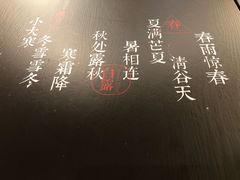 春雨惊春
清谷天
春
夏满芒夏
暑相连
白露
秋处露秋
寒霜降
冬雪雪冬
小大寒